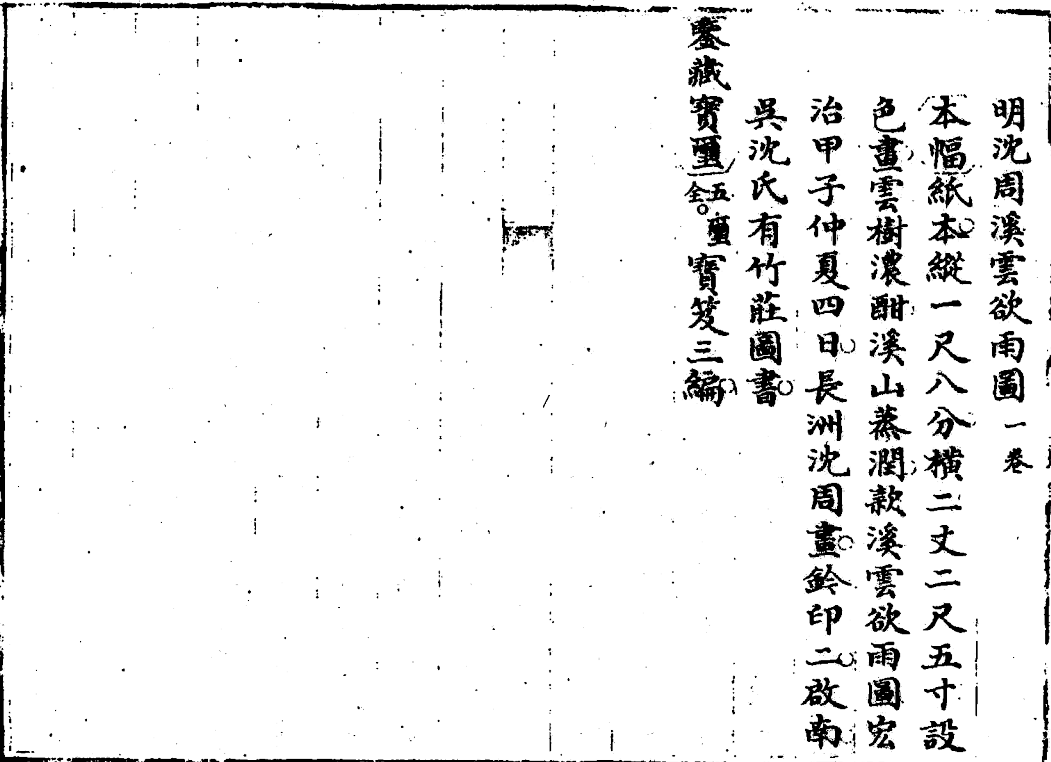 明沈周溪雲欲雨圖一卷
本幅紙本縱一尺八分橫二丈二尺五寸設
色畫雲樹濃酣溪山蒸潤款溪雲欲雨圖宏
治甲子仲夏四日長洲沈周畫鈐印二啟南
吳沈氏有竹莊圖書
鑒藏寶璽五璽全寶笈三編